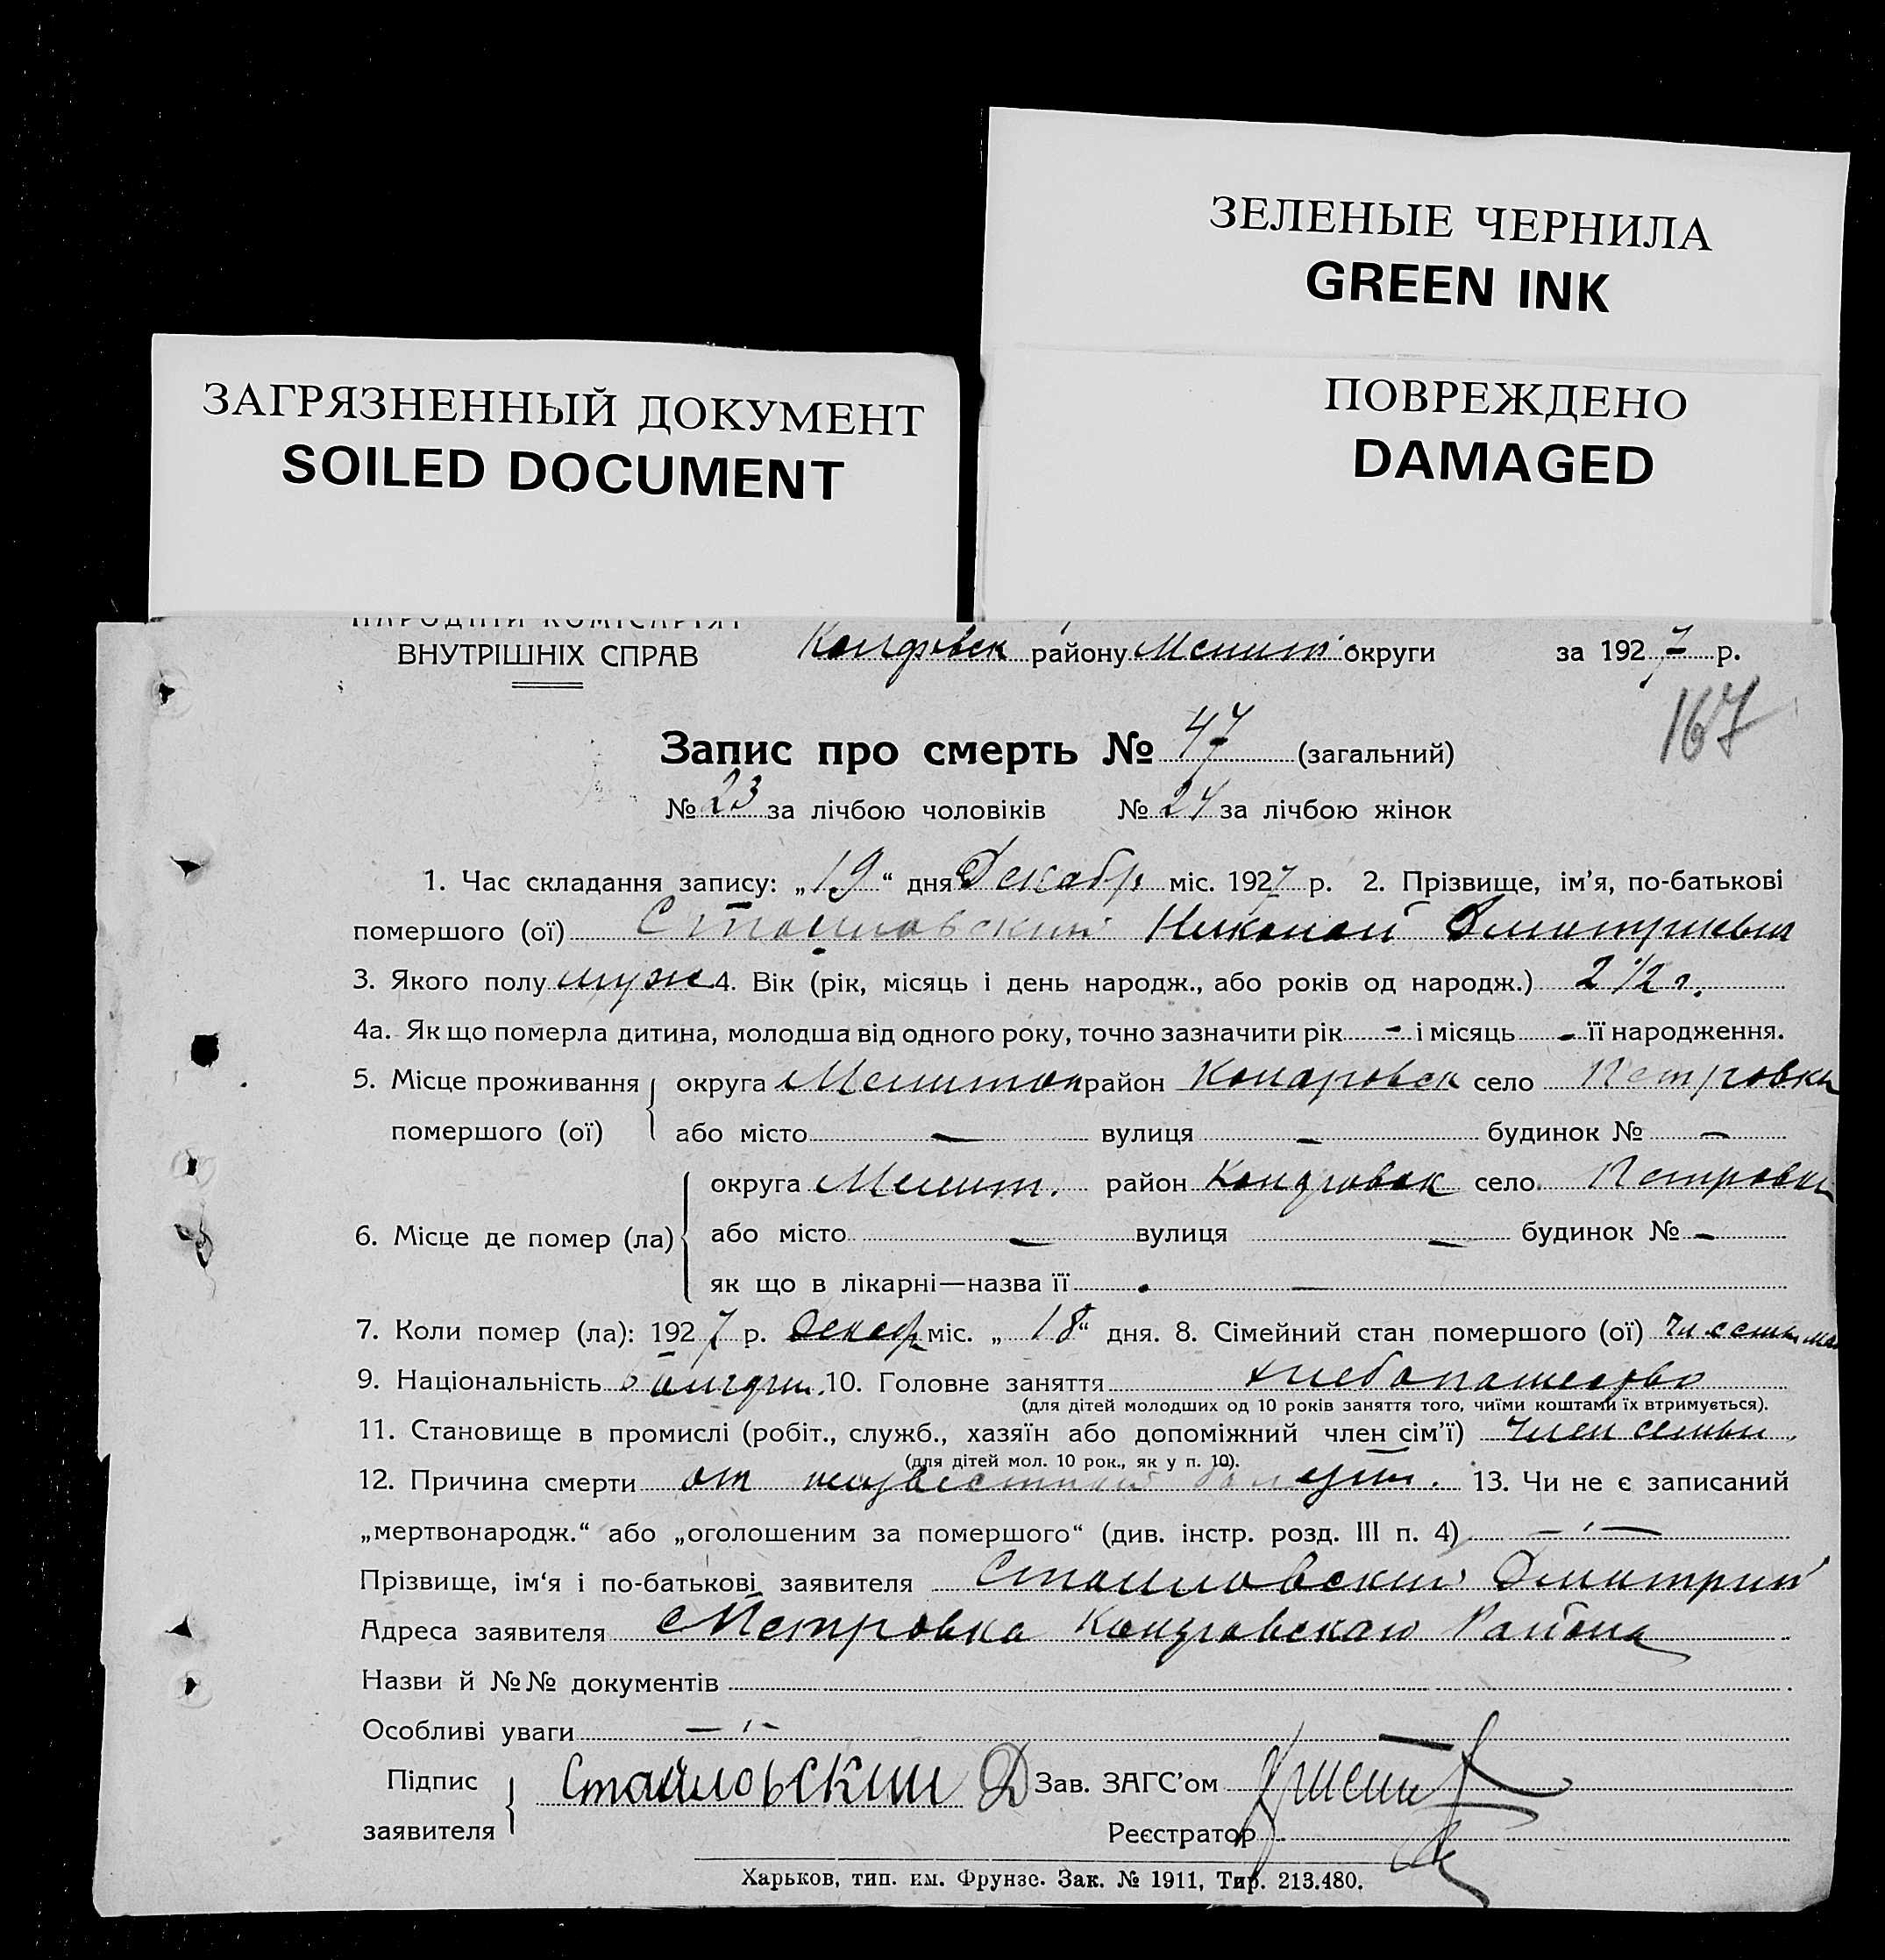 ЗЕЛЕНЫЕ ЧЕРНИЛА
GREEN INK
ЗАГРЯЗНЕННЫЙ ДОКУМЕНТ
SOILED DOCUMENT
ПОВРЕЖДЕНО
DAMAGED
НАРОДНІЙ КОМІСАРІЯТ
ВНУТРІШНІХ СПРАВ району Мелит округи за 1927 р.
167
Запис про смерть № 47 (загальний)
№ 23 за лічбою чоловіків № 24 за лічбою жінок
1. Час складання запису: „19“ дня Декабр міс. 1927 р. 2. Прізвище, ім’я, по-батькові
помершого (ої) Стоиловский Николай Дмитриевич
3. Якого полу муж 4. Вік (рік, місяць і день народж., або років од народж.) 2 1/2 г.
4а. Як що померла дитина, молодша від одного року, точно зазначити рік - і місяць - її народження.
5. Місце проживання округа Мелитоп район село Петровка
помершого (ої) або місто — вулиця — будинок № —
округа Мелит. район село Петровка
6. Місце де помер (ла) або місто — вулиця — будинок № —
як що в лікарні—назва її —
7. Коли помер (ла): 1927 р. Декабр міс. „18“ дня. 8. Сімейний стан помершого (ої)
9. Національність Болгарин. 10. Головне заняття хлебопашество
(для дітей молодших од 10 років заняття того, чиїми коштами їх втримується).
11. Становище в промислі (робіт., служб., хазяїн або допоміжний член сім’ї) член семьи
(для дітей мол. 10 рок., як у п. 10).
12. Причина смерти от неизвестной болезни. 13. Чи не є записаний
„мертвонародж.“ або „оголошеним за помершого“ (див. інстр. розд. III п. 4) —"—
Прізвище, ім‘я і по-батькові заявителя Стоиловский Дмитрий
Адреса заявителя с Петровка Района
Назви й №№ документів
Особливі уваги —"—
Підпис Стоиловский Д Зав. ЗАГС’ом
заявителя Реєстратор
Харьков, тип. им. Фрунзе. Зак. № 1911, Тир. 213.480.